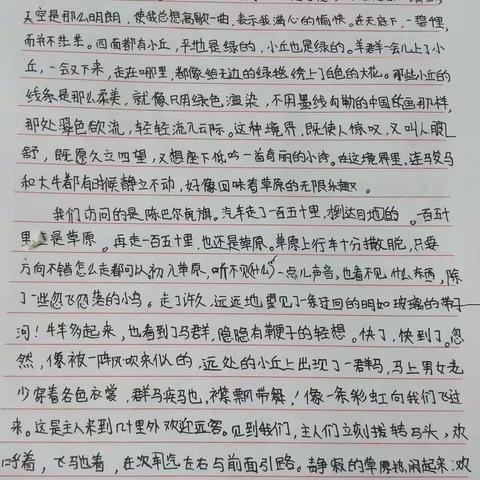 天空是那么明朗，使我总想高歌一曲，表示我满心的愉快。在天底下，一碧千里，
而并不茫茫。四面都有小丘，平地是绿的，小丘也是绿的。羊群一会儿上了小
丘，一会又下来，走在哪里，都像给无边的绿毯绣上了白色的大花。那些小丘的
线条是那么柔美，就像只用绿色渲染，不用墨线勾勒的中国画那样，
那处翠色欲流，轻轻流入云际。这种境界，既使人惊叹，又叫人
舒，既愿久立四望，又想座下低吟一首奇丽的小诗。在这境界里，连骏马
和大牛都有时候静立不动，好像回味着草原的无限乐趣。
我们访问的是陈巴尔虎旗。汽车走了一百五十里，到达目地的。一百五十
里是草原。再走一百五十里，也还是草原。草原上行车十分撒脱，只要
方向不错怎么走都可以。初入草原，听不见(什么)一点儿声音，也看不见什么东西，除
了一些忽飞忽落的小鸟。走了许久，远远地望见了一条迂回的明如玻璃的带子
河！牛羊多起来，也看到了马群，隐隐有鞭子的轻响。快了，快到了。忽
然，像被一阵风吹来似的，远处的小丘上出现了一群马，马上男女老
少穿着各色衣裳，群马疾马也，襟飘带舞，像一条彩虹向我们飞过
来。这是主人来到几十里外欢迎远客。见到我们，主人们立刻拨转马头，欢
呼着，飞马也着，在汽车左右与前面引路。静寂的草原热闹起来：欢